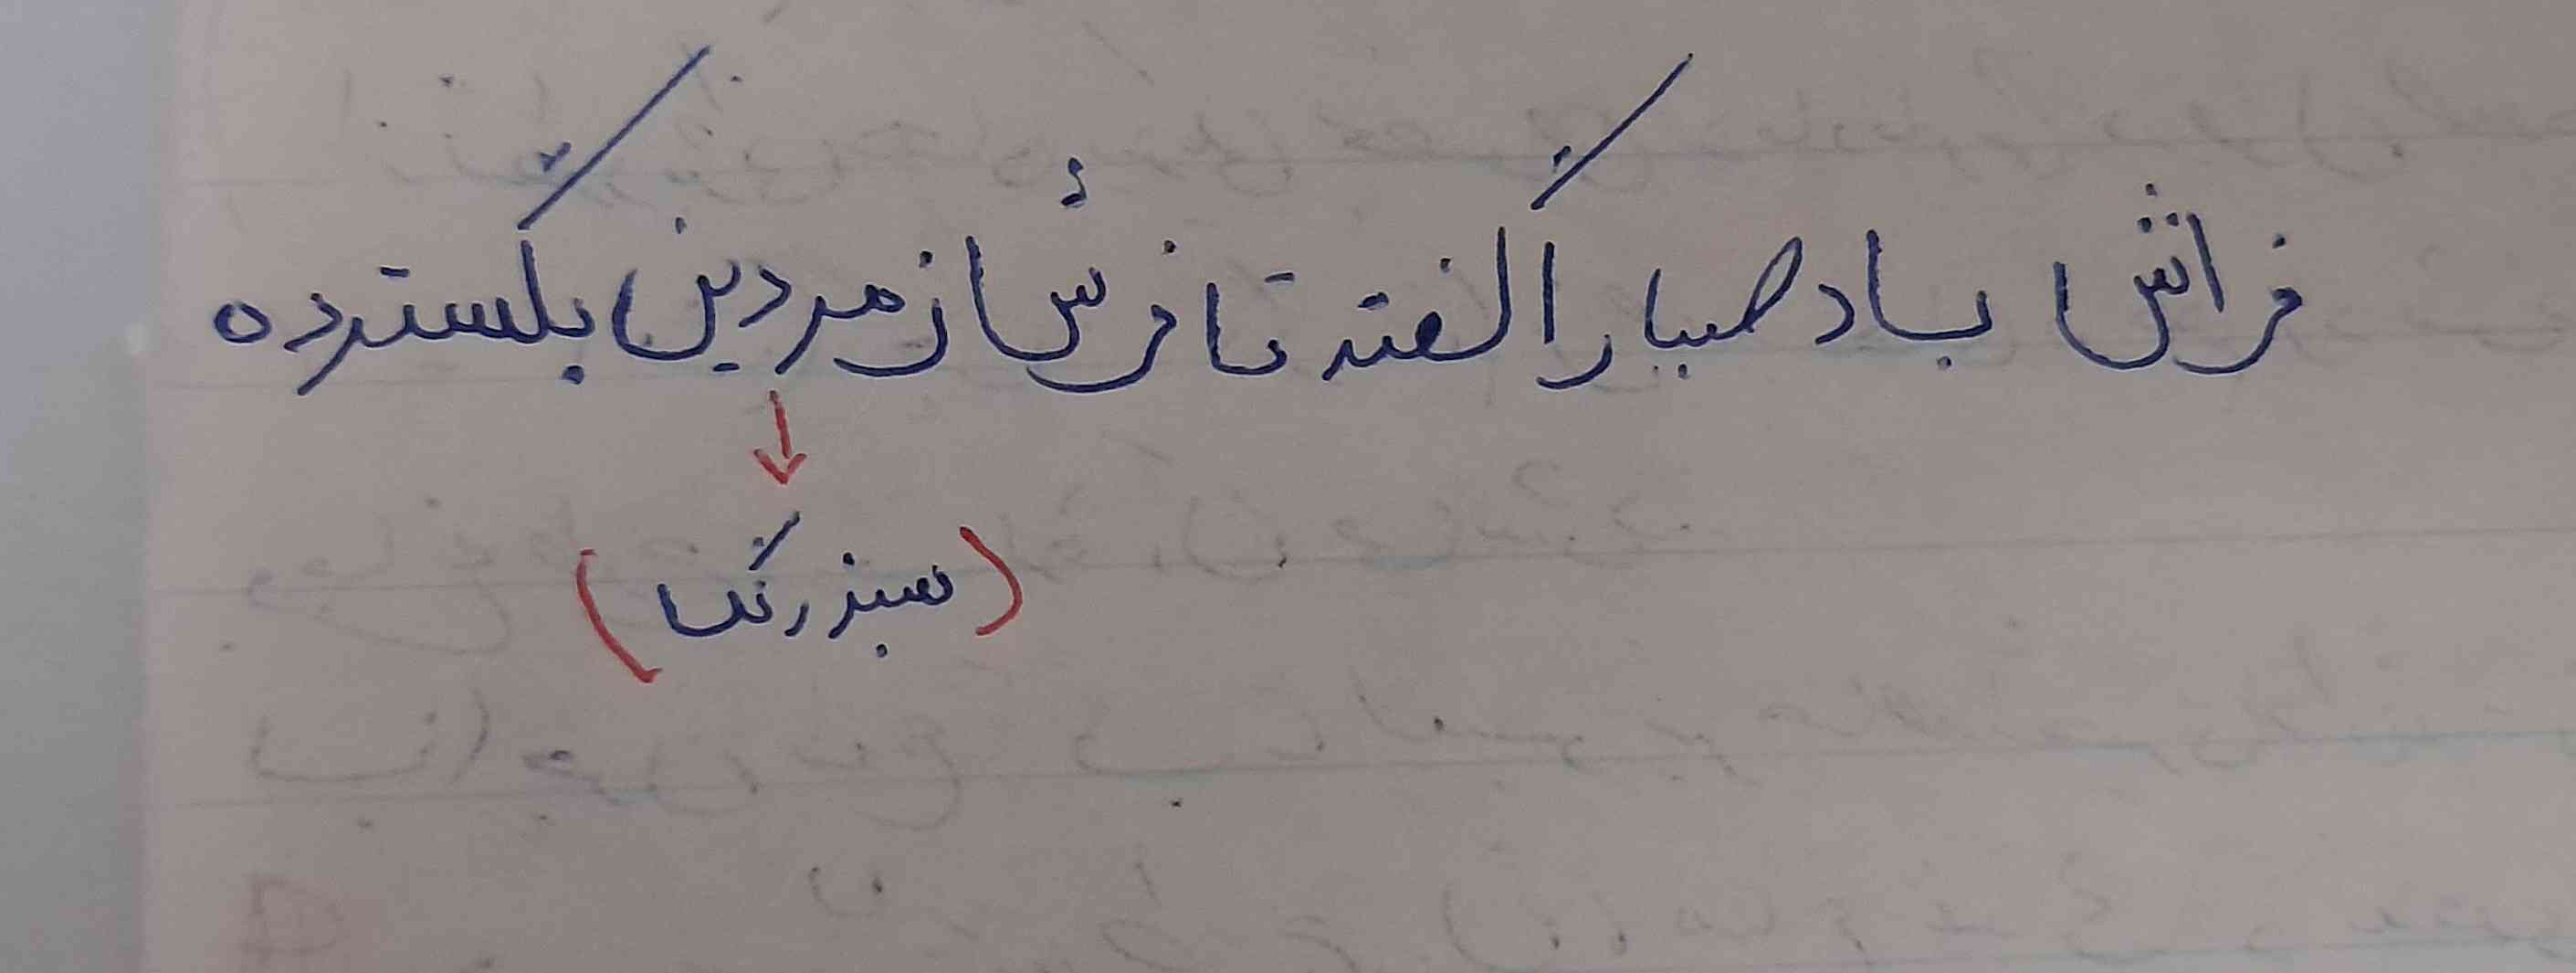 فراش باد صبا را گفته تا فرش زمردین بگسترده
(سبز رنگ)